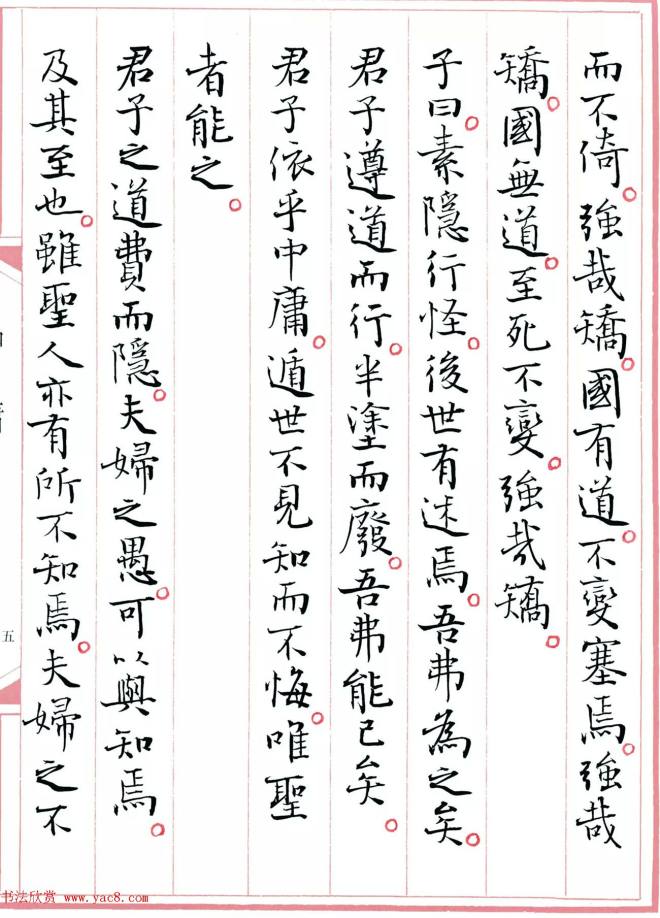 而不倚。強哉矯。國有道。不變塞焉。強哉
矯。國無道。至死不變。強哉矯。
子曰。素隱行怪。後世有述焉。吾弗為之矣。
君子遵道而行。半塗而廢。吾弗能已矣。
君子依乎中庸。遁世不見知而不悔。唯聖
者能之。
君子之道費而隱。夫婦之愚。可以與知焉。
及其至也。雖聖人亦有所不知焉。夫婦之不
五
书法欣赏 www.yac8.com